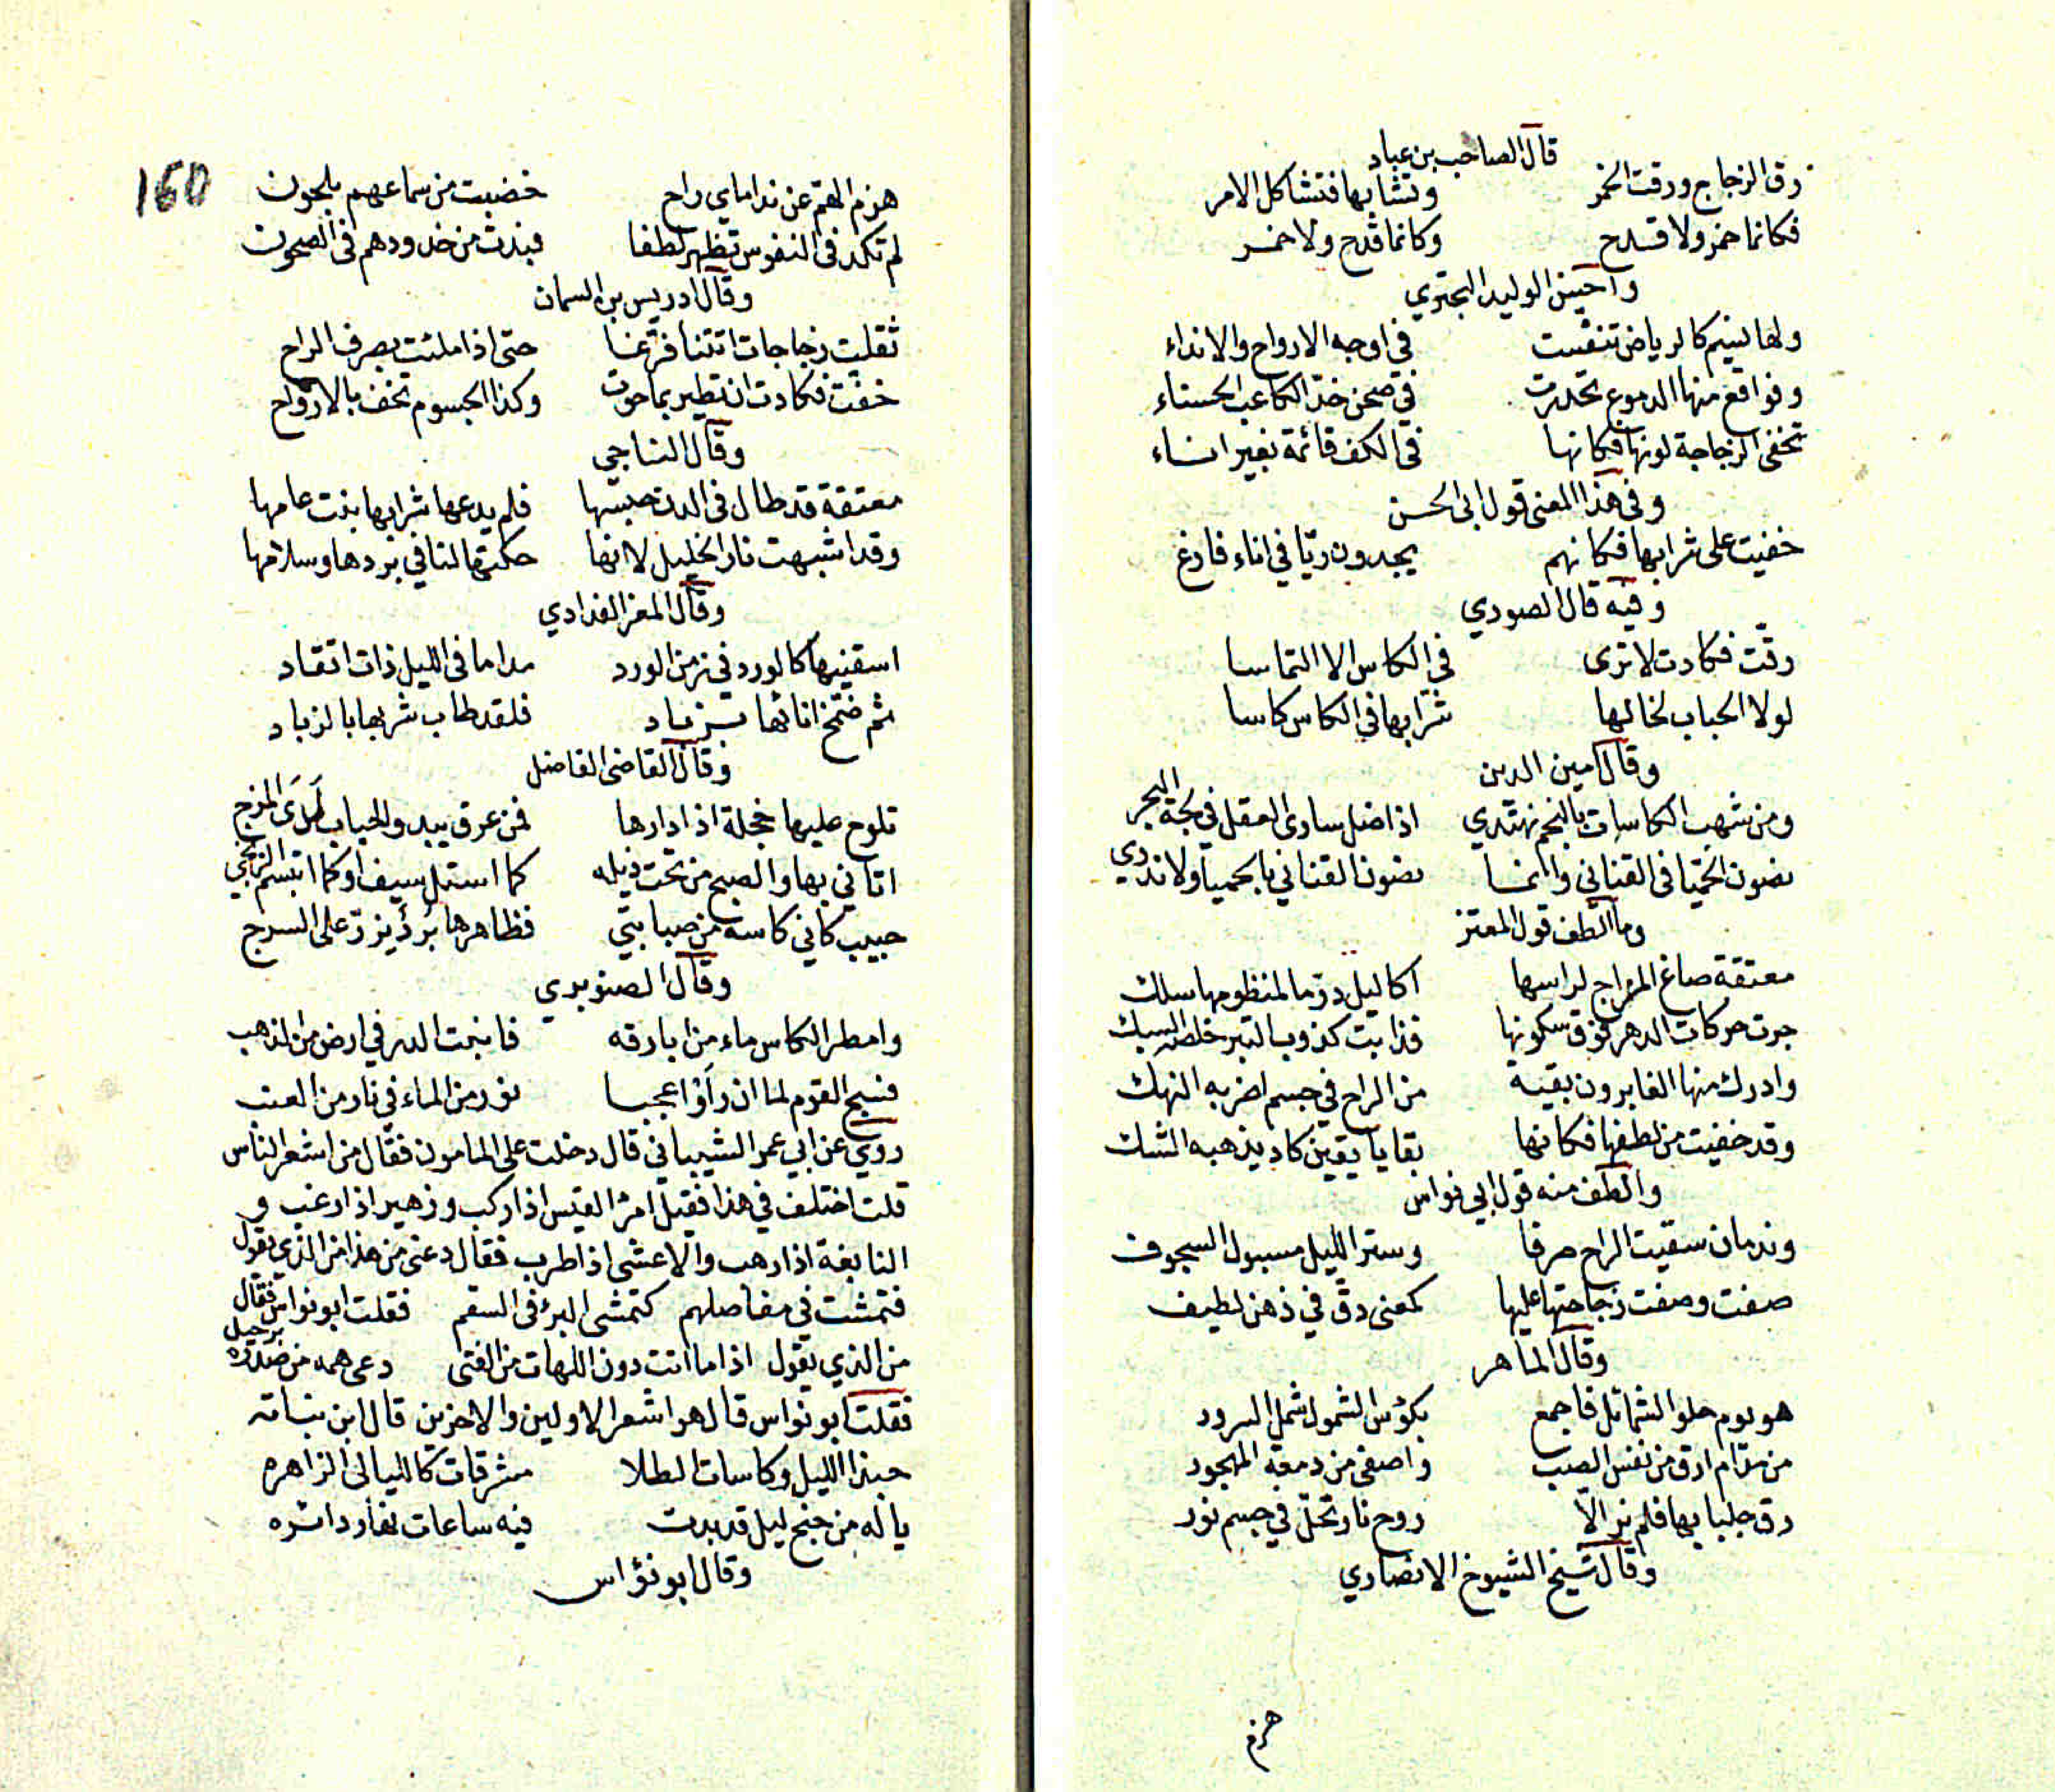 قال الصاحب بن عباد
رق الزجاج ورقت الخمر وتشابها فتشاكل الامر
فكانما خمر ولا قدح وكانما قدح ولا خمر
واحسن الوليد البحتري
ولها نسيم كالرياض تنفست في اوجه الارواح والانداء
وفواقع منها الدموع تحدرت في صحن خد الكاعب الحسناء
تخفى الزجاجة لونها فكانها في الكف قائمة بغير اناء
وفي هذا المعنى قول ابى الحسن
خفيت على شرابها فكانهم يجدون ريّا في اناء فارغ
وفيه قال الصوري
رقّت فكادت لا ترى في الكاس الا التماسا
لولا الحباب لخالها شرابها في الكاس كاسا
وقال امين الدين
ومن شهب الكاسات بالنجم نهتدي اذا ضل ساوى العقل في لجة البحر
نصون الحميا فى القناني وانما نصون القناني بالحميا ولا ندري
وما الطف قول المعتز
معتقة صاغ المزاج لراسها اكاليل در ما لمنظومها سلك
جرت حركات الدهر فوق سكونها فذابت كذوب التبر خلصه السبك
وادرك منها الغابرون بقية من الراح في جسم اضر به النهك
وقد خفيت من لطفها فكانها بقايا يقين كاد يذهبه الشك
والطف منه قول ابي نواس
وندمان سقيت الراح صرفا وستر الليل مسبول السجوف
صفت وصفت زجاجتها عليها كمعنى دق في ذهن لطيف
وقال الماهر
هو يوم حلو الشمائل فاجمع بكؤس الشمول شمل السرور
من مدام ارق من نفس الصب واصفى من دمعة المهجور
رق جلبابها فلم نر الا روح نار تحل في جسم نور
وقال شيخ الشيوخ الانصاري
هزم
160
هزم الهم عن نداماي راح خضبت من سماعهم بلحون
لم تكد في النفوس تظهر لطفا فبدت من خدودهم في الصحون
وقال ادريس بن السمان
ثقلت زجاجات اتتنا فرّغا حتى اذا ملئت بصرف الراح
خفت فكادت ان تطير بما حوت وكذا الجسوم تخف بالارواح
وقال التاجي
معتقة قد طال في الدن حبسها فلم يدعها شرابها بنت عامها
وقد اشبهت نار الخليل لانها حكتها لنا في بردها وسلامها
وقال المعز الغدادي
اسقنيها كالورد في زمن الورد مداما فى الليل ذات اتقاد
ثم ضمخ انائها بزباد فلقد طاب شربها بالزباد
وقال القاضى الفاضل
تلوح عليها خجلة اذ ادارها فمن عرق يبدو الحباب لدى المزج
اتاني بها والصبح من تحت ذيله كما استل سيف او كما ابتسم الزنجي
حبيب كاني كاسه من صبابتي فظاهرها برد يزر على السرج
وقال الصنوبري
وامطر الكاس ماء من ابارقه فانبتت الدر في ارض من الذهب
فسبح القوم لما ان رأوا عجبا نور من الماء في نار من العنب
روي عن ابي عمر الشيباني قال دخلت على المامون فقال من اشعر الناس
قلت اختلف في هذا فقيل امرؤ القيس اذا ركب وزهير اذا رغب و
النابغة اذا رهب والاعشى اذا طرب فقال دعني من هذا من الذي يقول
فتمشت في مفاصلهم كتمشى البرء فى السقم فقلت ابو نواس فقال
من الذي يقول اذا ما اتت دون اللهات من الفتى دعى همه من صدره برحيل
فقلت ابو نواس قال هو اشعر الاولين والاخرين قال ابن نباته
حبذا الليل وكاسات الطلا مشرقات كالليالى الزاهره
يا له من جنح ليل قد بدت فيه ساعات نهار دائره
وقال ابو نؤاس